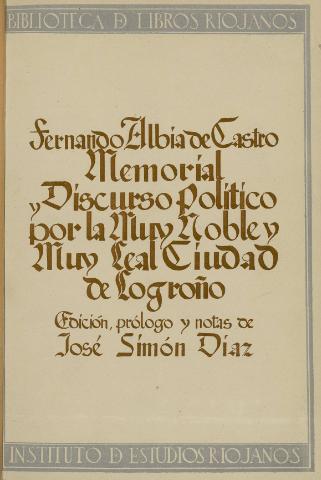 BIBLIOTECA D LIBROS RIOJANOS
Fernando Albia de Castro
Memorial
y Discurso Politico
por la Muy Noble y
Muy Leal Ciudad
de Logroño
Edición, prólogo y notas de
José Simón Diaz
INSTITUTO D ESTUDIOS RIOJANOS